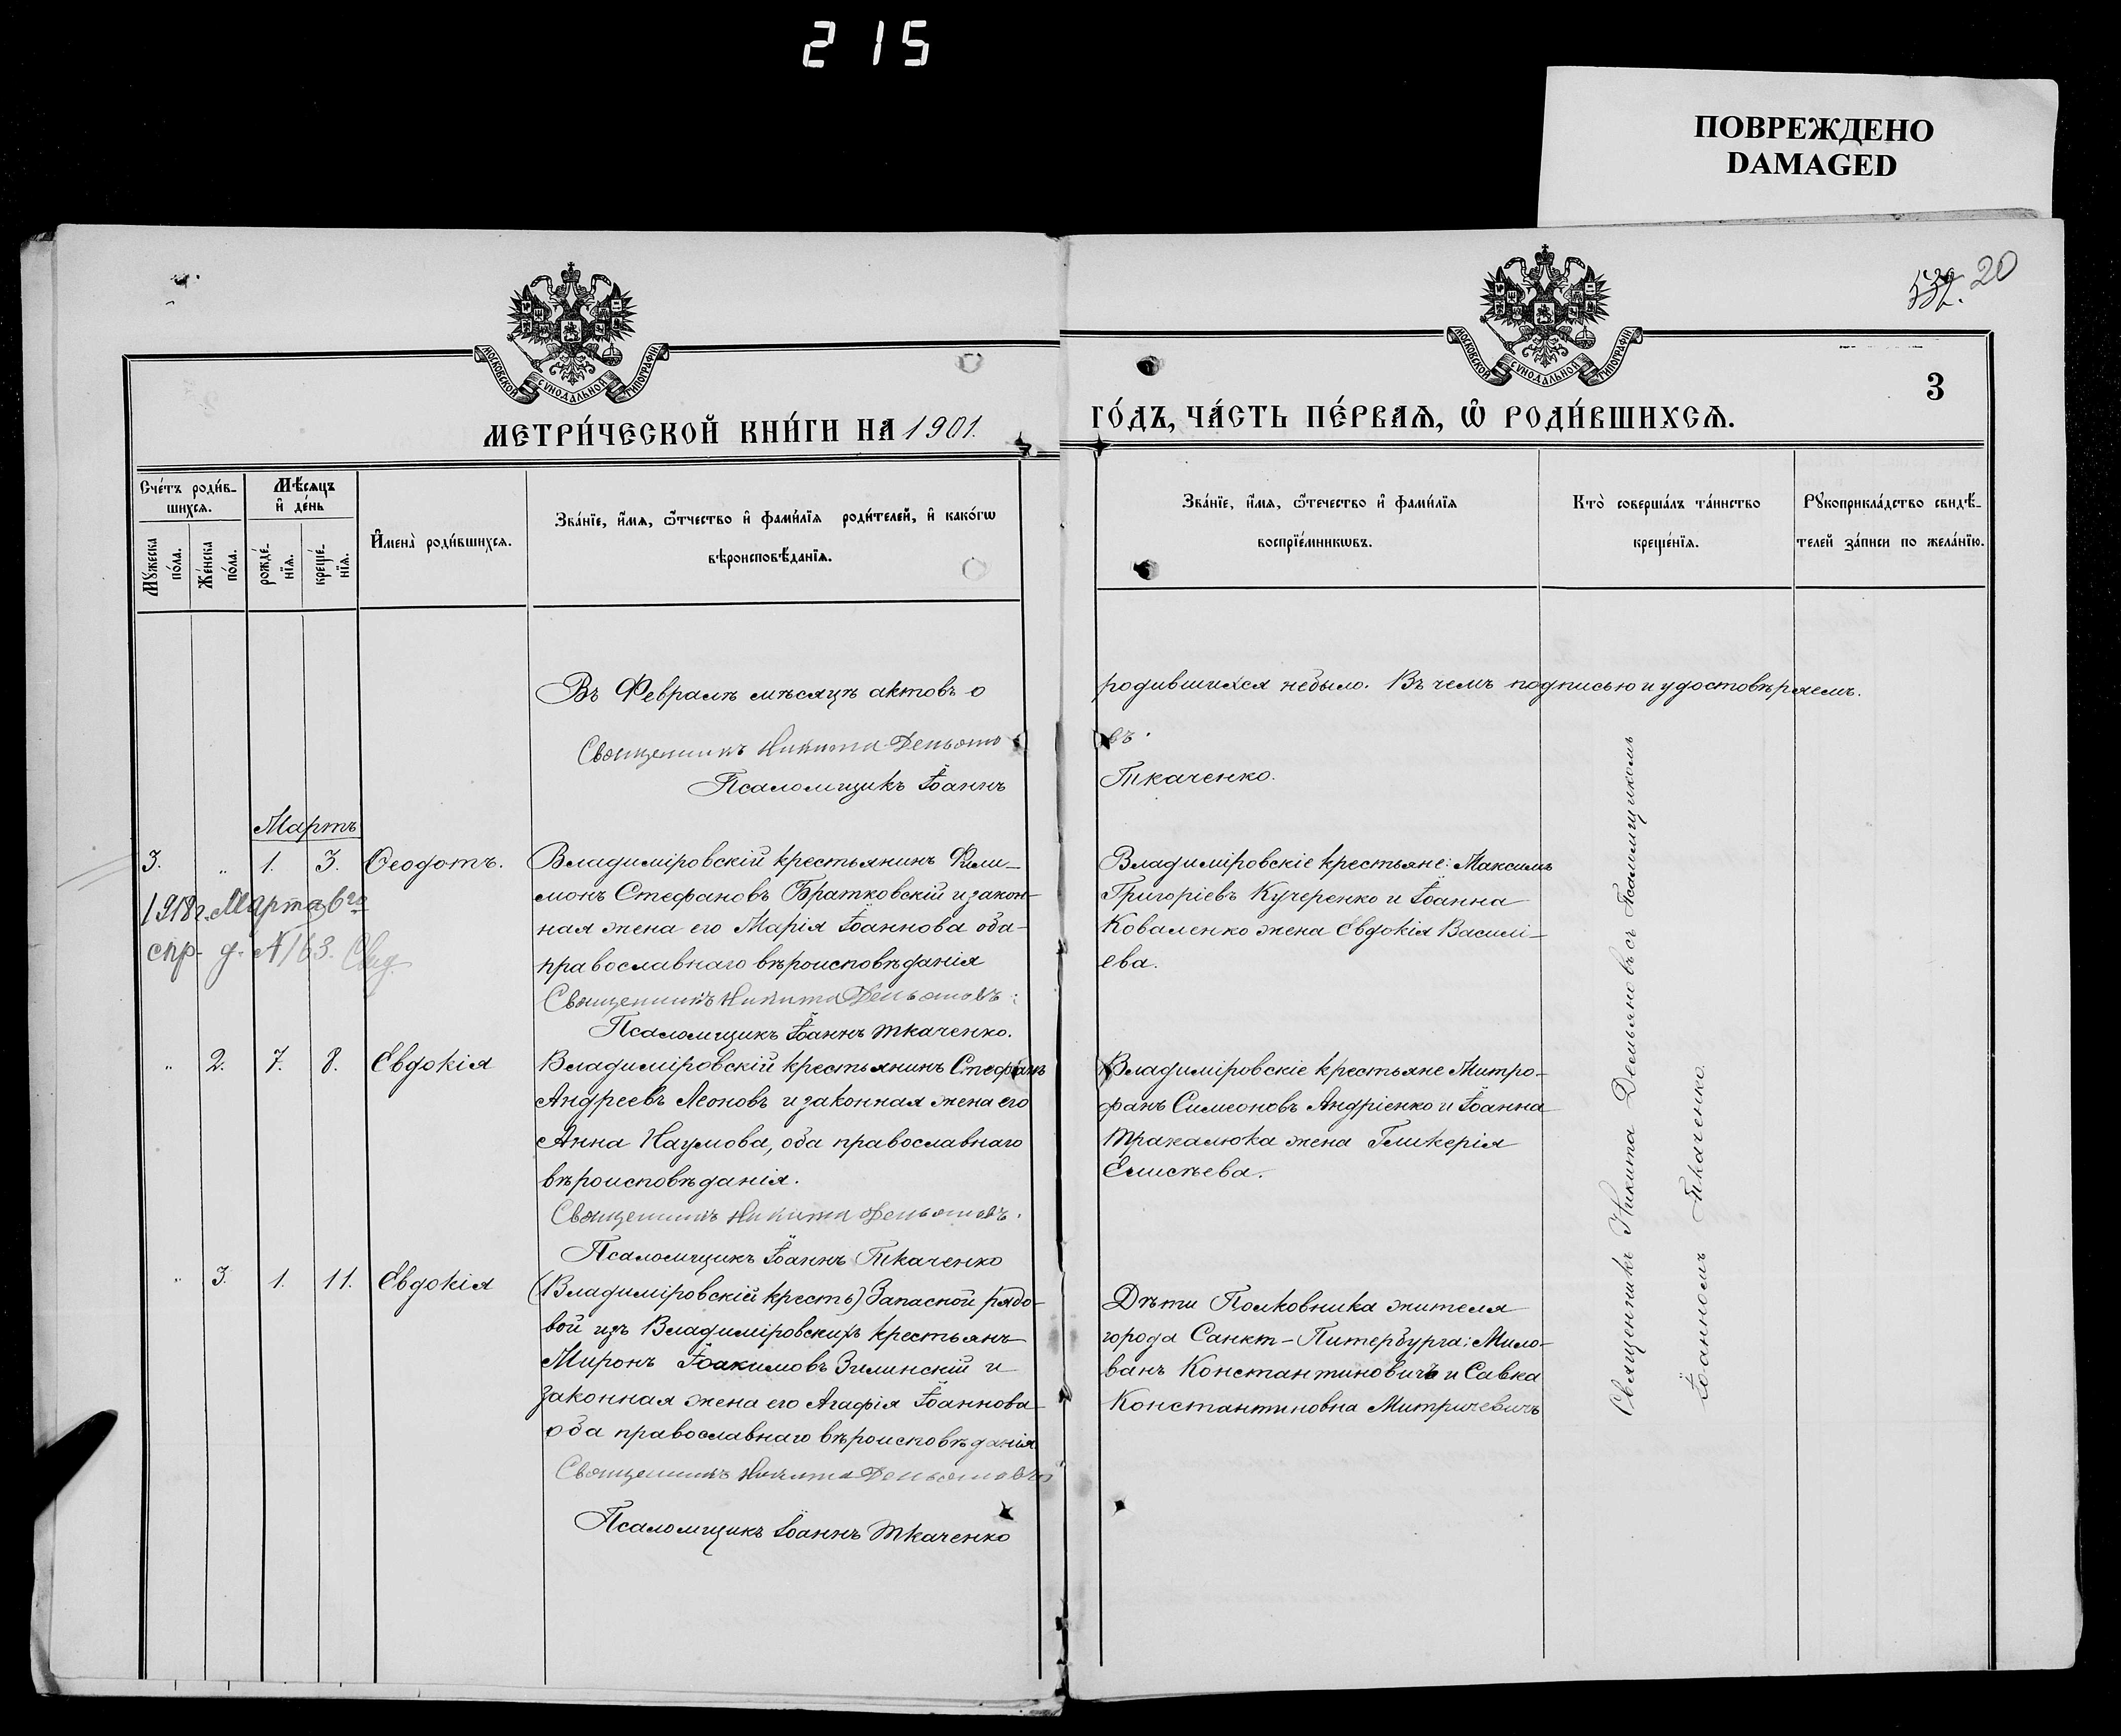 215
ПОВРЕЖДЕНО
DAMAGED
20
МОСКОВСКОЙ СѴНОДАЛЬНОЙ ТИПОГРАФІИ
МОСКОВСКОЙ СѴНОДАЛЬНОЙ ТИПОГРАФІИ
3
МЕТРИ́ЧЕСКОЙ КНИ́ГИ НА 1901.
ГО́ДЪ, ЧА́СТЬ ПЕ́РВАѦ, Ѡ҆ РОДИ́ВШИХСѦ.
Сче́тъ роди́в-
шихсѧ.
Мꙋ́жеска
по́ла.
Же́нска
по́ла.
Мѣ́сѧцъ
и҆ де́нь
рожде́-
нїѧ.
креще́-
нїѧ.
И҆мена̀ роди́вшихсѧ.
Зва́нїе, и҆́мѧ, ѻ҆́тчество и҆ фами́лїѧ роди́телей, и҆ како́гѡ
вѣроисповѣ́данїѧ.
Зва́нїе, и҆́мѧ, ѻ҆те́чество и҆ фами́лїѧ
воспрїе́мникѡвъ.
Кто̀ соверша́лъ та́инство
креще́нїѧ.
Рꙋкоприкла́дство свидѣ́-
телей за́писи по жела́нїю.
Въ Февралѣ мѣсяцѣ актовъ о
родившихся небыло. Въ чемъ подписью и удостовѣряемъ.
Священникъ Никита Демьяно
въ.
Псаломщикъ Іоаннъ
Ткаченко.
Мартъ
3. „ 1. 3. Ѳеодотъ.
Владиміровскій крестьянинъ Фили-
монъ Стефановъ Братковскій и закон-
ная жена его Марія Іоаннова оба-
православнаго вѣроисповѣданія
Священникъ Никита Демьяновъ:
Псаломщикъ Іоаннъ Ткаченко.
Владиміровскіе крестьяне: Максимъ
Григоріевъ Кучеренко и Іоанна
Коваленко жена Евдокія Василі-
ева.
1918 г. Марта 6го
спр. д. № 163.
„ 2. 7. 8. Евдокія
Владиміровскій крестьянинъ Стефанъ
Андреевъ Леоновъ и законная жена его
Анна Наумова, оба православнаго
вѣроисповѣданія.
Священникъ Никита Демьяновъ.
Псаломщикъ Іоаннъ Ткаченко
Владиміровскіе крестьяне Митро-
фанъ Симеоновъ Андріенко и Іоанна
Трахалюка жена Гликерія
Елисѣева.
„ 3. 1. 11. Евдокія
(Владиміровскій кресть) Запасной рядо-
вой изъ Владиміровскихъ крестьянъ
Миронъ Іоакимовъ Зилинскій и
законная жена его Агафія Іоаннова
оба православнаго вѣроисповѣданія
Священникъ Никита Демьяновъ
Псаломщикъ Іоаннъ Ткаченко
Дѣти Полковника жителя
города Санкт-Питербурга: Мило-
ванъ Константиновичъ и Савка
Константиновна Митричевичъ
Священникъ Никита Демьяновъ съ Псаломщикомъ
Іоанномъ Ткаченко.